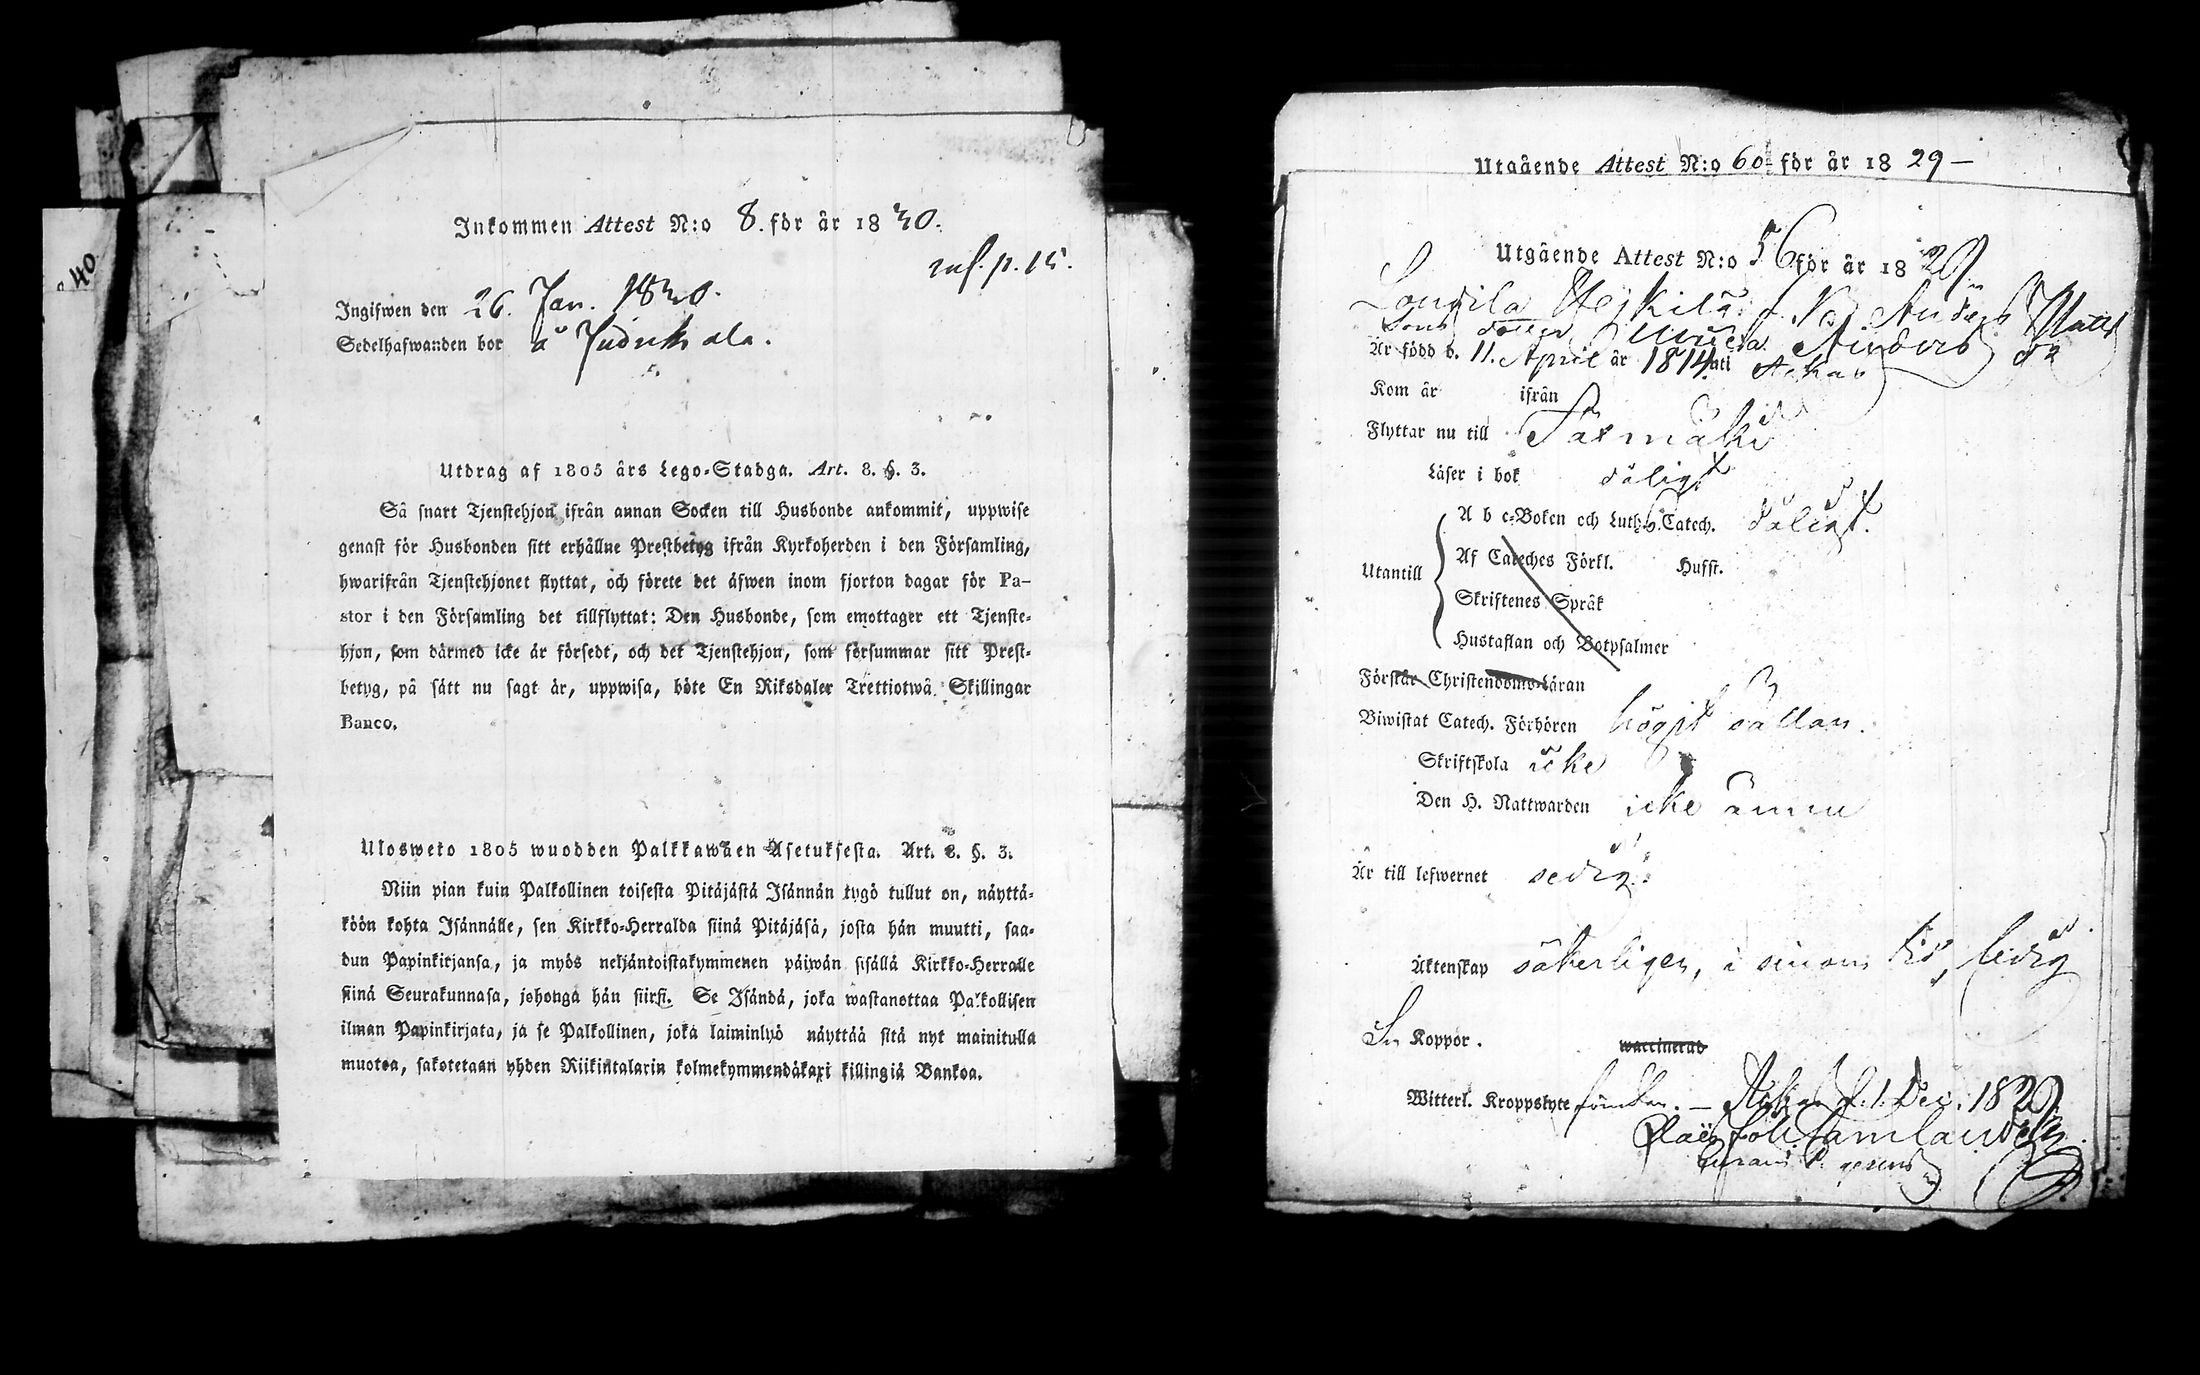 40
Inkommen Attest N:o 8. för år 1830.
inf. p. 15.
Ingifwen den 26. Jan. 1830.
Sedelhafwanden bor å
Utdrag af 1805 års Lego-Stadga. Art. 8. §. 3.
Så snart Tjenstehjon ifrån annan Socken till Husbonde ankommit, uppwise
genast för Husbonden sitt erhållne Prestbetyg ifrån Kyrkoherden i den Församling,
hwarifrån Tjenstehjonet flyttat, och förete det äfwen inom fjorton dagar för Pa-
stor i den Församling det tillflyttat: Den Husbonde, som emottager ett Tjenste-
hjon, som därmed icke är försedt, och det Tjenstehjon, som försummar sitt Prest-
betyg, på sätt nu sagt är, uppwisa, böte En Riksdaler Trettiotwå Skillingar
Banco.
Ulosweto 1805 wuodden Palkkawäen Asetuksesta. Art. 8. §. 3.
Niin pian kuin Palkollinen toisesta Pitäjästä Isännän tygö tullut on, näyttä-
köön kohta Isännälle, sen Kirkko-Herralda siinä Pitäjäsä, josta hän muutti, saa-
dun Papinkirjansa, ja myös neljäntoistakymmenen päiwän sisällä Kirkko-Herralle
siinä Seurakunnasa, johonga hän siirsi. Se Isändä, joka wastanottaa Palkollisen
ilman Papinkirjata, ja se Palkollinen, joka laiminlyö näyttää sitä nyt mainitulla
muotoa, sakotetaan yhden Riikintalarin kolmekymmendäkaxi killingiä Bankoa.
Utgående Attest N:o 60 för år 1829 —
Utgående Attest N:o 56 för år 1829.
Heikilä Anders Matts
Sons dotter Anders dr
Är född d. 11. April år 1814 uti
Kom år ifrån
Flyttar nu till Sarmäki
Läser i bok dåligt
Utantill
A b c-Boken och Luth. Catech. dåligt.
Af Cateches Förkl. Husst.
Skriftenes Språk
Hustaflan och Botpsalmer
Förstår Christendoms-Läran
Biwistat Catech. Förhören högst sällan.
Skriftskola icke
Den H. Nattwarden icke ännu
Är till lefwernet sedig.
Äktenskap säkerligen, i sinom tid, ledig
Koppor. waccinerad
Witterl. Kroppslyte d. 1. Dec. 1829